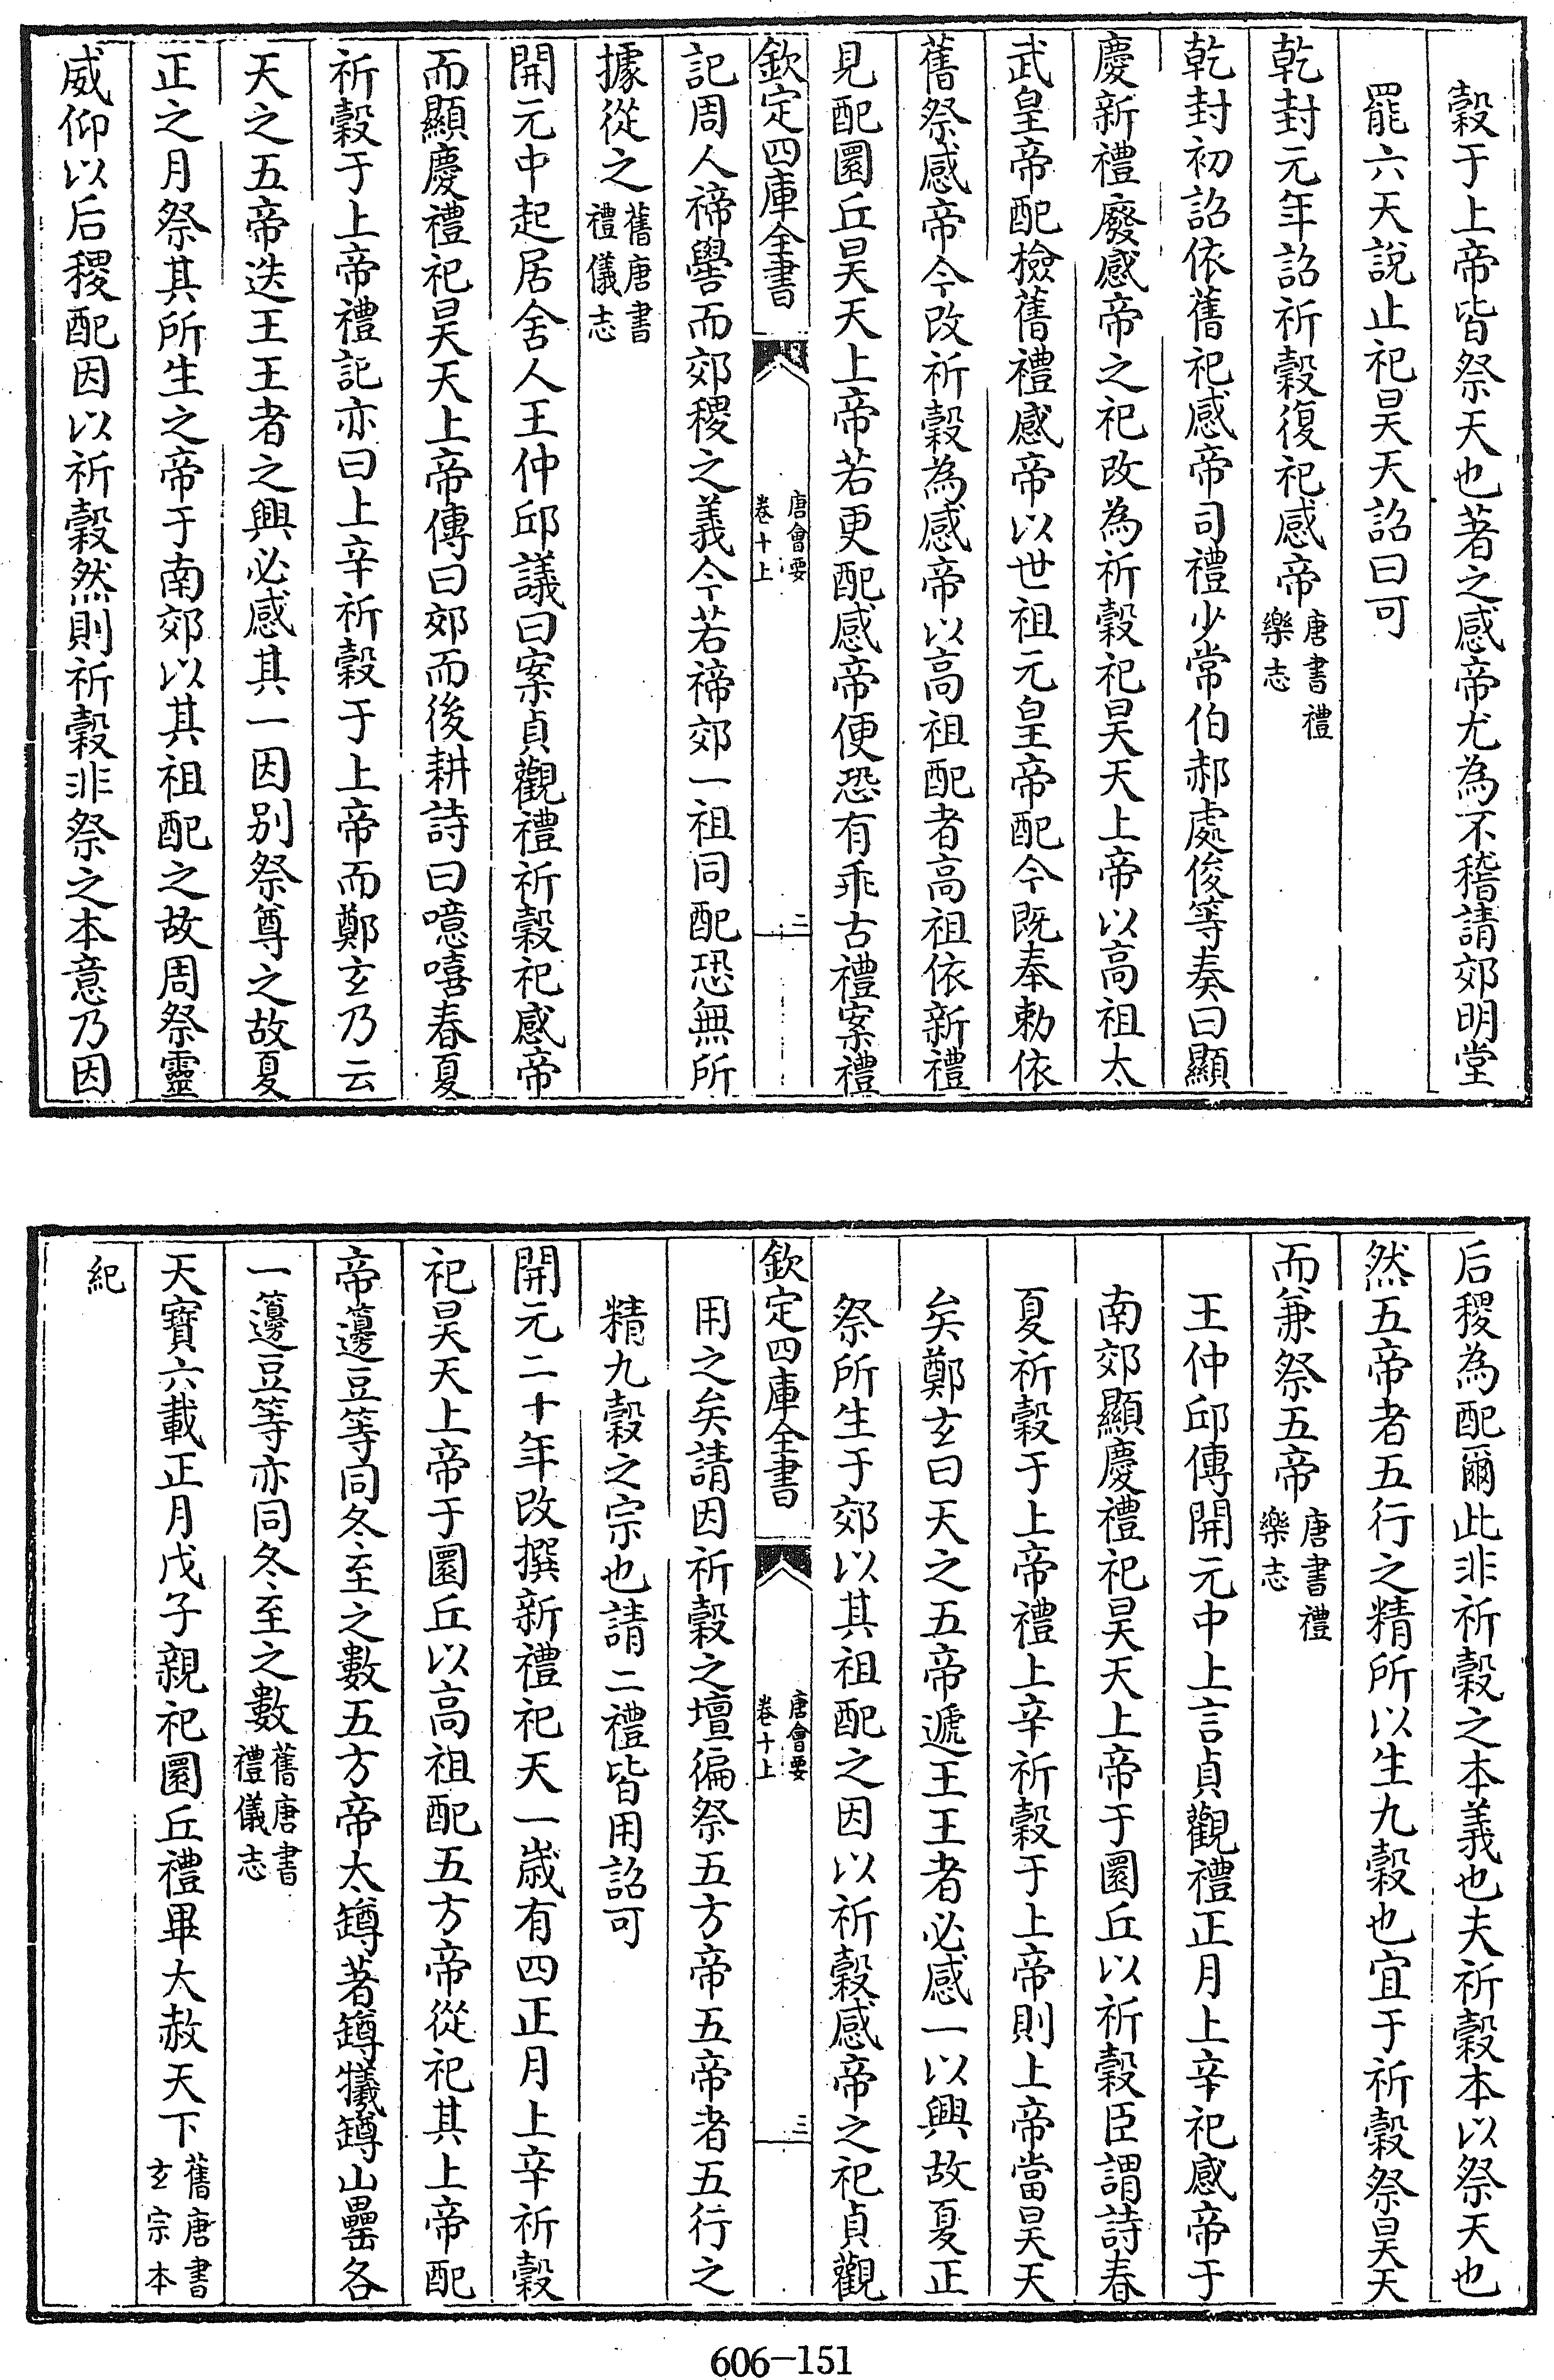 穀于上帝皆祭天也著之感帝尤為不稽請郊明堂
罷六天說止祀昊天詔曰可
乾封元年詔祈穀復祀感帝唐書禮樂志
乾封初詔依舊祀感帝司禮少常伯郝處俊等奏曰顯
慶新禮廢感帝之祀改為祈穀祀昊天上帝以高祖太
武皇帝配檢舊禮感帝以世祖元皇帝配今既奉勅依
舊祭感帝今改祈穀為感帝以高祖配者高祖依新禮
見配圜丘昊天上帝若更配感帝便恐有乖古禮案禮
欽定四庫全書
唐會要
卷十上
二
記周人禘嚳而郊稷之義今若禘郊一祖同配恐無所
據從之舊唐書禮儀志
開元中起居舍人王仲邱議曰案貞觀禮祈穀祀感帝
而顯慶禮祀昊天上帝傳曰郊而後耕詩曰噫嘻春夏
祈穀于上帝禮記亦曰上辛祈穀于上帝而鄭玄乃云
天之五帝迭王王者之興必感其一因別祭尊之故夏
正之月祭其所生之帝于南郊以其祖配之故周祭靈
威仰以后稷配因以祈穀然則祈穀非祭之本意乃因
后稷為配爾此非祈穀之本義也夫祈穀本以祭天也
然五帝者五行之精所以生九穀也宜于祈穀祭昊天
而兼祭五帝唐書禮樂志
王仲邱傳開元中上言貞觀禮正月上辛祀感帝于
南郊顯慶禮祀昊天上帝于圜丘以祈穀臣謂詩春
夏祈穀于上帝禮上辛祈穀于上帝則上帝當昊天
矣鄭玄曰天之五帝遞王王者必感一以興故夏正
祭所生于郊以其祖配之因以祈穀感帝之祀貞觀
欽定四庫全書
唐會要
卷十上
三
用之矣請因祈穀之壇徧祭五方帝五帝者五行之
精九穀之宗也請二禮皆用詔可
開元二十年改撰新禮祀天一歲有四正月上辛祈穀
祀昊天上帝于圜丘以高祖配五方帝從祀其上帝配
帝籩豆等同冬至之數五方帝太罇著罇犧罇山罍各
一籩豆等亦同冬至之數舊唐書禮儀志
天寶六載正月戊子親祀圜丘禮畢大赦天下舊唐書玄宗本
紀
606-151